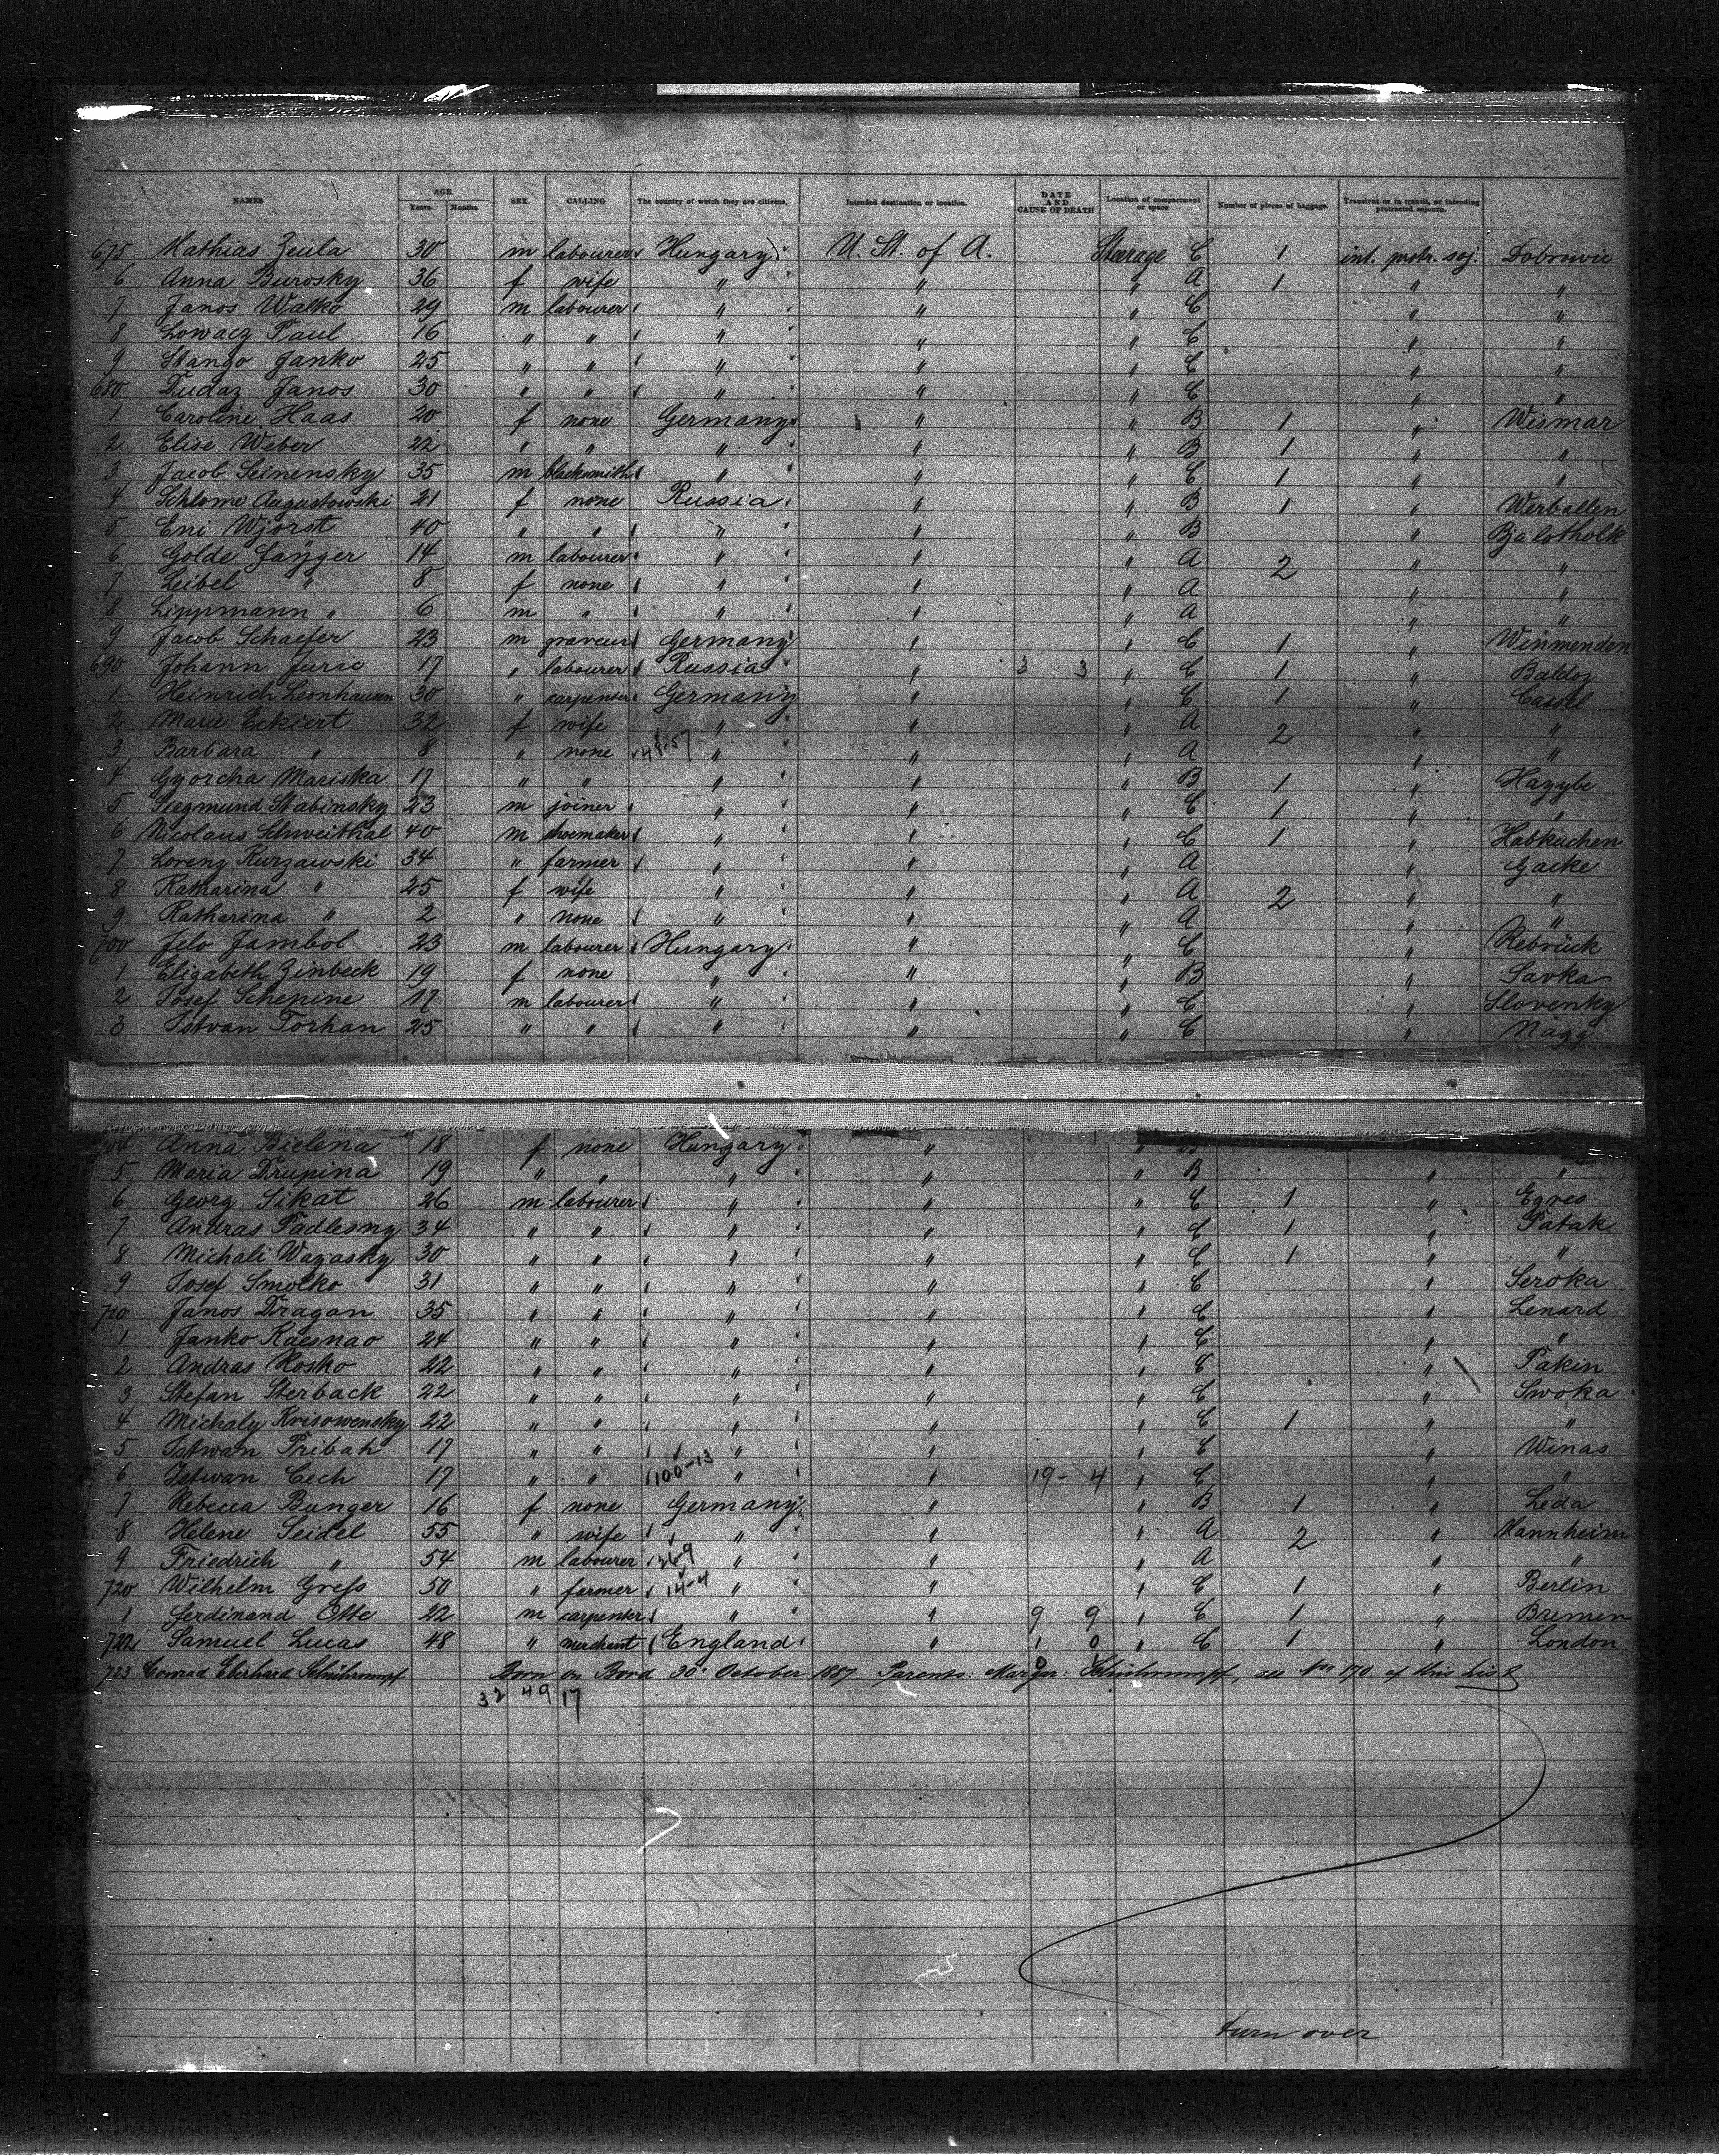 NAMES AGE. Years. Months. SEX. CALLING The country of which they are citizens. Intended destination or location. DATE AND CAUSE OF DEATH Location of compartment or space Number of pieces of baggage. Transient or in transit, or intending protracted sojourn.
675 Mathias Zeula 30 m labourer Hungary U. St. of A. Steerage C 1 int. protr. soj. Dobrowic
6 Anna Burosky 36 f wife " " " A 1 " "
7 Janos Walko 29 m labourer " " " C " "
8 Lowacz Paul 16 " " " " " C " "
9 Stango Janko 25 " " " " " C " "
680 Dudaz Janos 30 " " " " " C " "
1 Caroline Haas 20 f none Germany " " B 1 " Wismar
2 Elise Weber 22 " " " " " B 1 " "
3 Jacob Seinensky 35 m blacksmith " " " C 1 " "
4 Schlome Augustowski 21 f none Russia " " B 1 " Werballen
5 Eni Wjorst 40 " " " " " B " Bjalotholk
6 Golde Jayger 14 m labourer " " " A 2 " "
7 Leibel " 8 f none " " " A " "
8 Lippmann " 6 m " " " " A " "
9 Jacob Schaefer 23 m graveur Germany " " C 1 " Winmenden
690 Johann Juric 17 " labourer Russia " 3 3 " C 1 " Baldoz
1 Heinrich Leonhausen 30 " carpenter Germany " " C 1 " Cassel
2 Marie Eckiert 32 f wife " " " A 2 " "
3 Barbara " 8 " none 48-57 " " " A " "
4 Gyorcha Mariska 17 " " " " " B 1 " Hazybe
5 Siegmund Stabinsky 23 m joiner " " " C 1 " "
6 Nicolaus Schweithal 40 m shoemaker " " " C 1 " Habkuchen
7 Lorenz Kurzawski 34 " farmer " " " A " Gacke
8 Katharina " 25 f wife " " " A 2 " "
9 Katharina " 2 " none " " " A " "
700 Jelo Jambol 23 m labourer Hungary " " C " Rebrück
1 Elizabeth Zinbeck 19 f none " " " B " Savka
2 Josef Schepine 17 m labourer " " " C " Slovenky
3 Istvan Torhan 25 " " " " " C " Nagy
704 Anna Bielena 18 f none Hungary " " B
5 Maria Drupina 19 " " " " " B " "
6 Georg Sikat 26 m labourer " " " C 1 " Egres
7 Andras Padlesny 34 " " " " " C 1 " Patak
8 Michali Wazasky 30 " " " " " C 1 " "
9 Josef Smolko 31 " " " " " C " Seroka
710 Janos Dragan 35 " " " " " C " Lenard
1 Janko Kaesnao 24 " " " " " C " "
2 Andras Kosko 22 " " " " " C " Pakin
3 Stefan Sterback 22 " " " " " C " Swoka
4 Michaly Krisowensky 22 " " " " " C 1 " "
5 Istwan Pribah 17 " " " " " C " Winas
6 Istwan Cech 17 " " 100-13 " " 19-4 " C " "
7 Rebecca Bunger 16 f none Germany " " B 1 " Leda
8 Helene Seidel 55 " wife " " " A 2 " Mannheim
9 Friedrich " 54 m labourer " " " A " "
720 Wilhelm Grefs 50 " farmer 14-4 " " " C 1 " Berlin
1 Ferdinand Otte 22 m carpenter " " 9 9 " C 1 " Bremen
722 Samuel Lucas 48 " merchant England " 1 0 " C 1 " London
723 Conrad Eberhard Schuhrumpf Born on Bord 30. October 1887 Parents: Margar: Schuhrumpf, see No 170 of this List
32 49 17
turn over